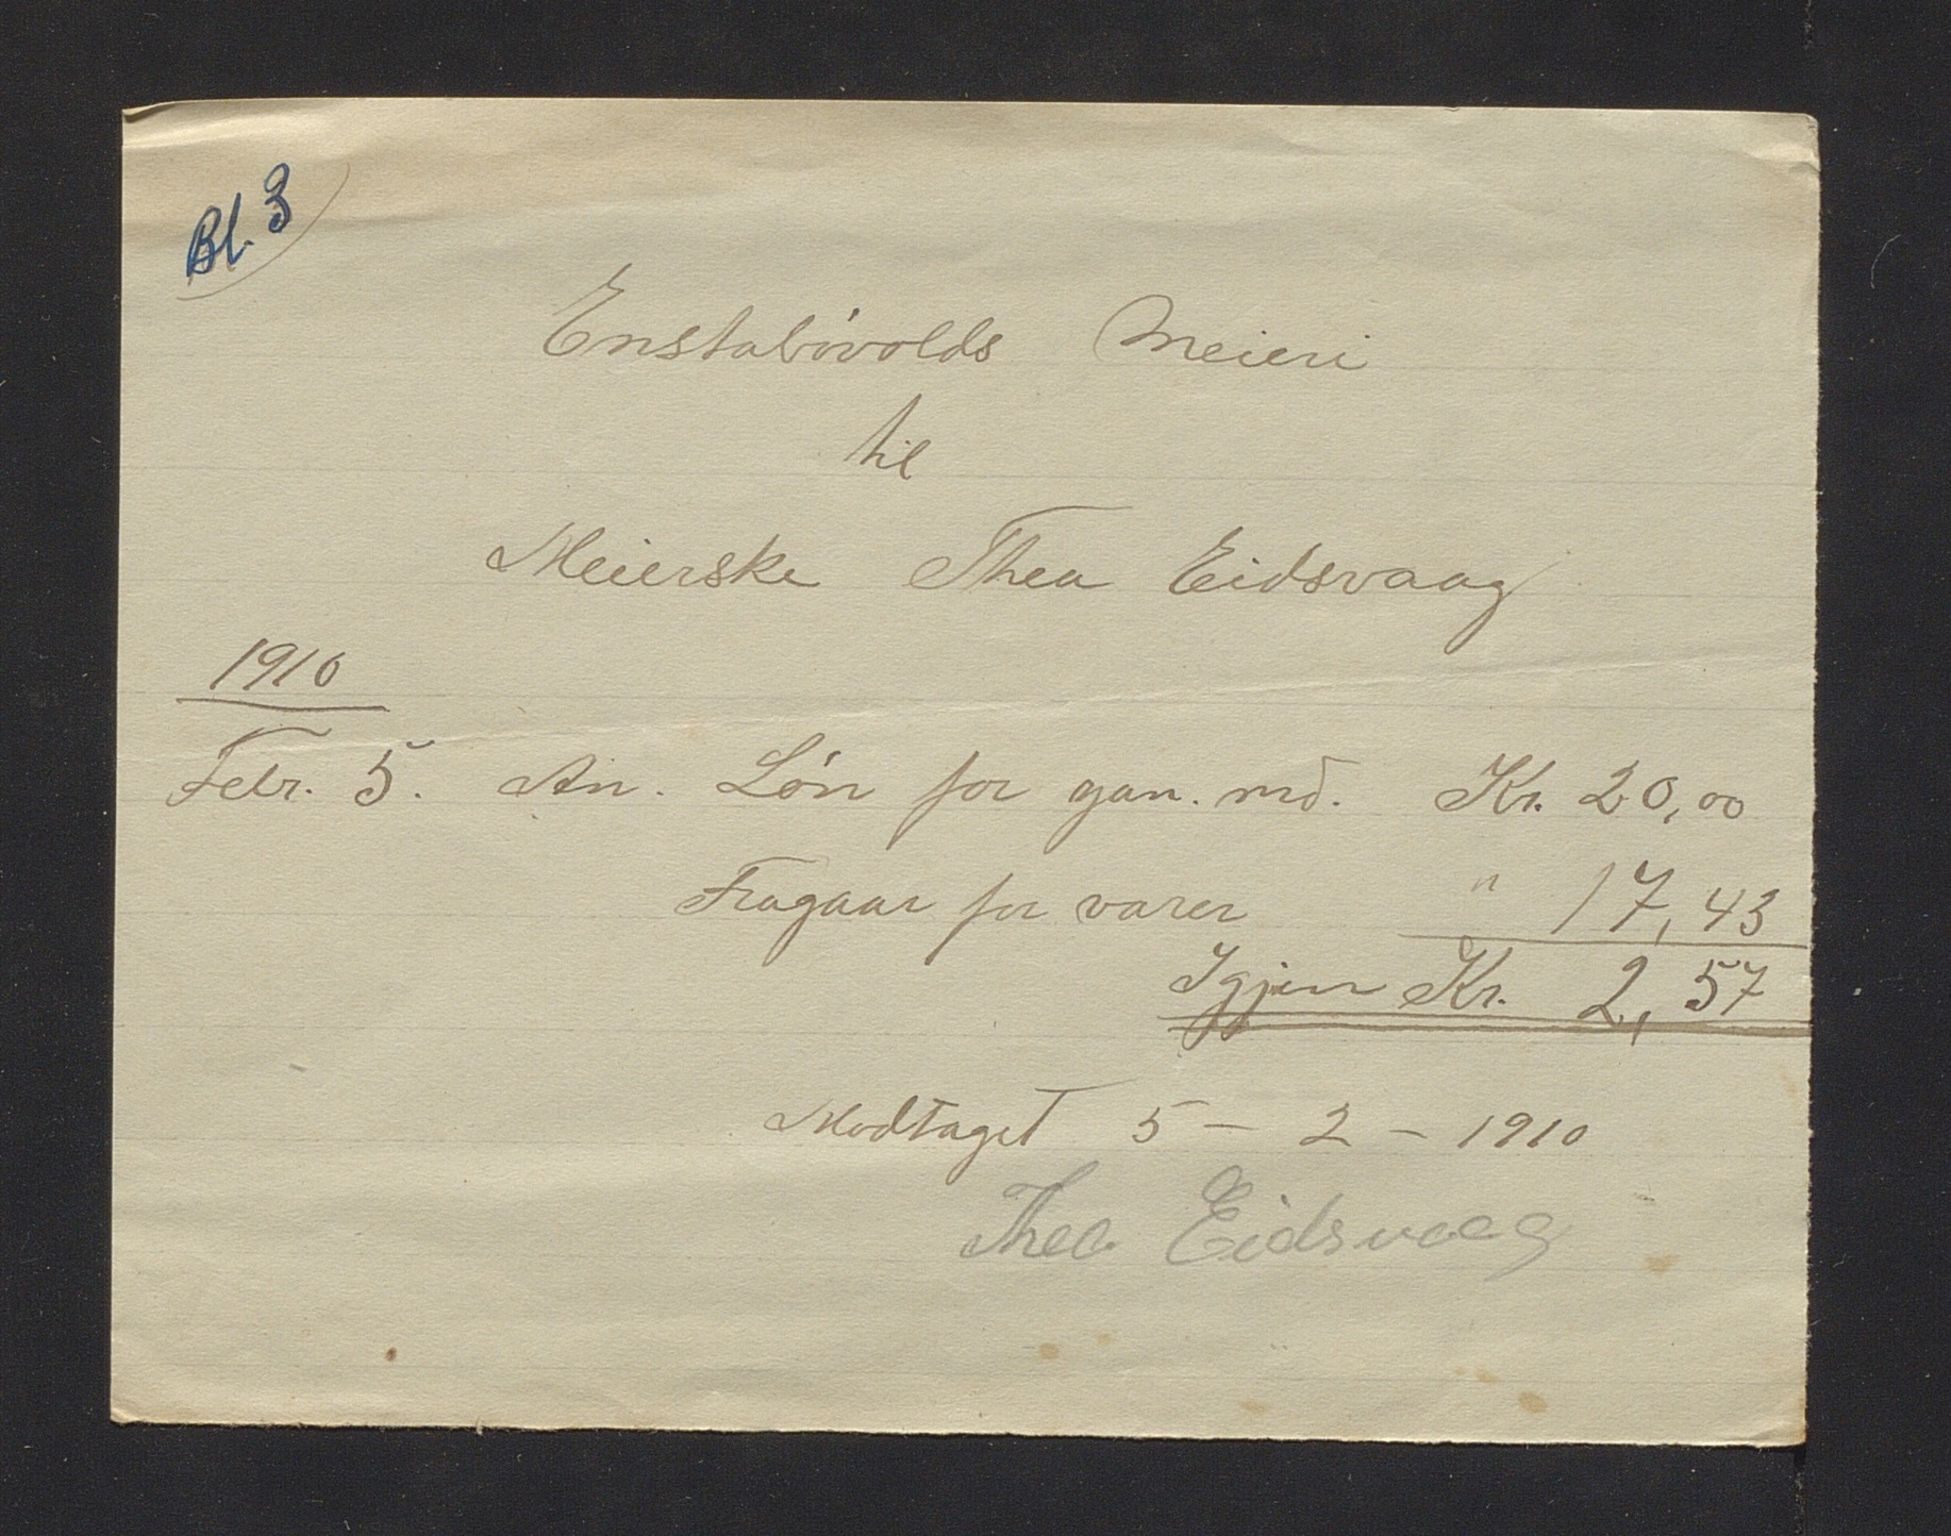 Bl. 3
Enstabóvolds Meieri
til
Meierske Thea Eidsvaag
1910
Febr. 5. An. Lón for jan. md. Kr. 20,00
Fragaar for varer " 17,43
Igjen Kr. 2,57
Modtaget 5 - 2 - 1910
Thea Eidsvaag